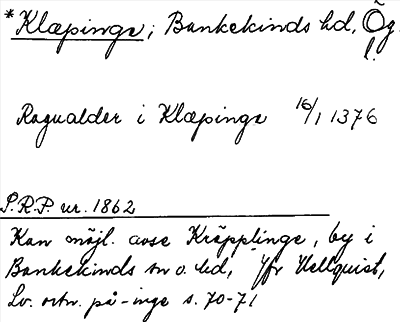 * Klæpinge; Bankekinds hd, Ög.
l.
Ragualder i Klæpinge 16/1 1376
S.R.P. nr. 1862
Kan möjl. avse Kräpplinge, by i
Bankekinds sn o. hd, Jfr Hellquist,
Sv. ortn. på -inge s. 70-71